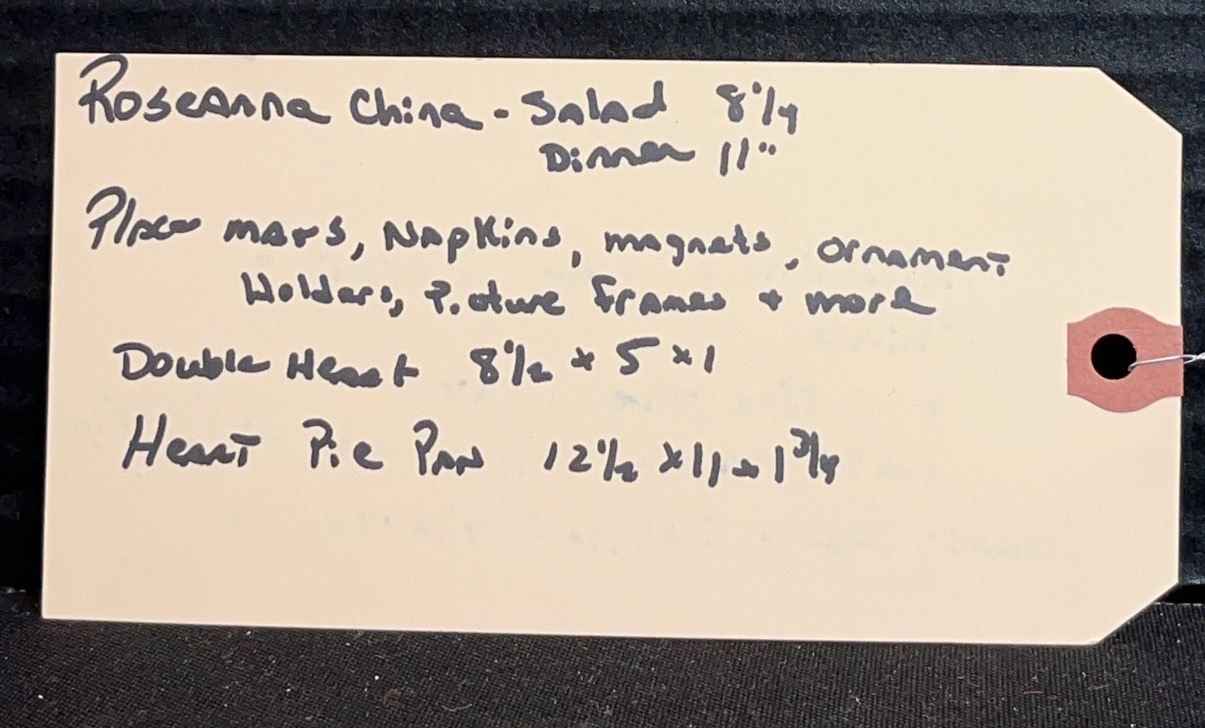 Roseanna China - Salad 8 1/4
Dinner 11"
Place mats, Napkins, magnets, ornament
Holders, Picture Frames + more
Double Heart 8 1/2 x 5 x 1
Heart Pie Pan 12 1/2 x 11 x 1 3/4